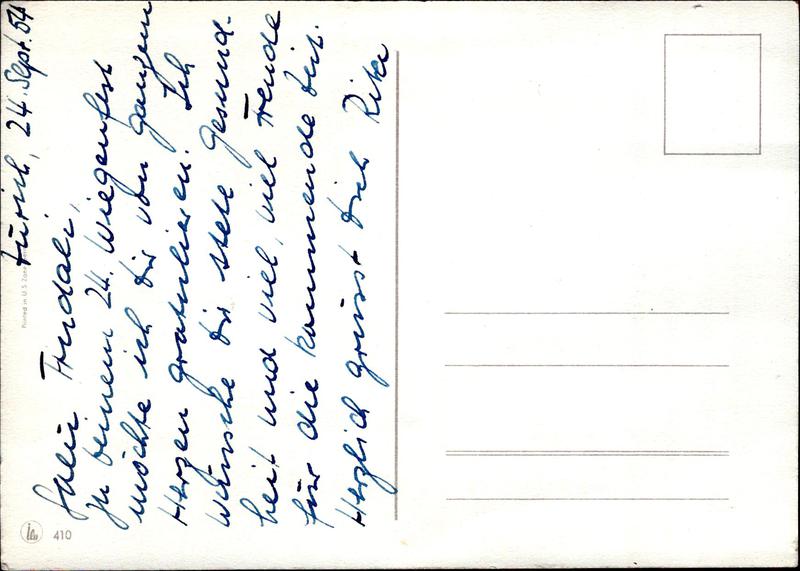 Zürich, 24. Sept. 54
Trudali,
Zu deinem 24. Wiegenfest
möchte ich Dir von ganzem
Herzen gratulieren. Ich
wünsche Dir stets Gesund-
heit und viel, viel Freude
für die kommende Zeit.
Herzlich grüsst Dich Rita
Printed in U.S. Zone
410